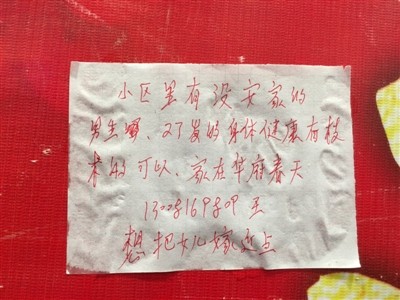 小区里有没安家的
男生哪、27岁的身体健康有技
术的可以、家在华府春天
想把女儿嫁近点